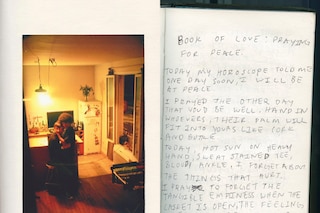 BOOK OF LOVE: PRAYING
FOR PEACE.
TODAY MY HOROSCOPE TOLD ME
ONE DAY SOON, I WILL BE
AT PEACE.
I PRAYED THE OTHER DAY
THAT YOU'D BE WELL. HAND IN
THEIR PALM WILL
FIT INTO YOURS LIKE CORK
AND BOTTLE
TODAY HOT SUN ON HEAVY
HAND, SWEAT STAINED TEE,
ANKLE, I FORGET ABOUT
THE THINGS THAT HURT.
I PRAY TO FORGET THE
TANGIBLE EMPTINESS WHEN THE
CASKET IS OPEN, THE FEELINGS